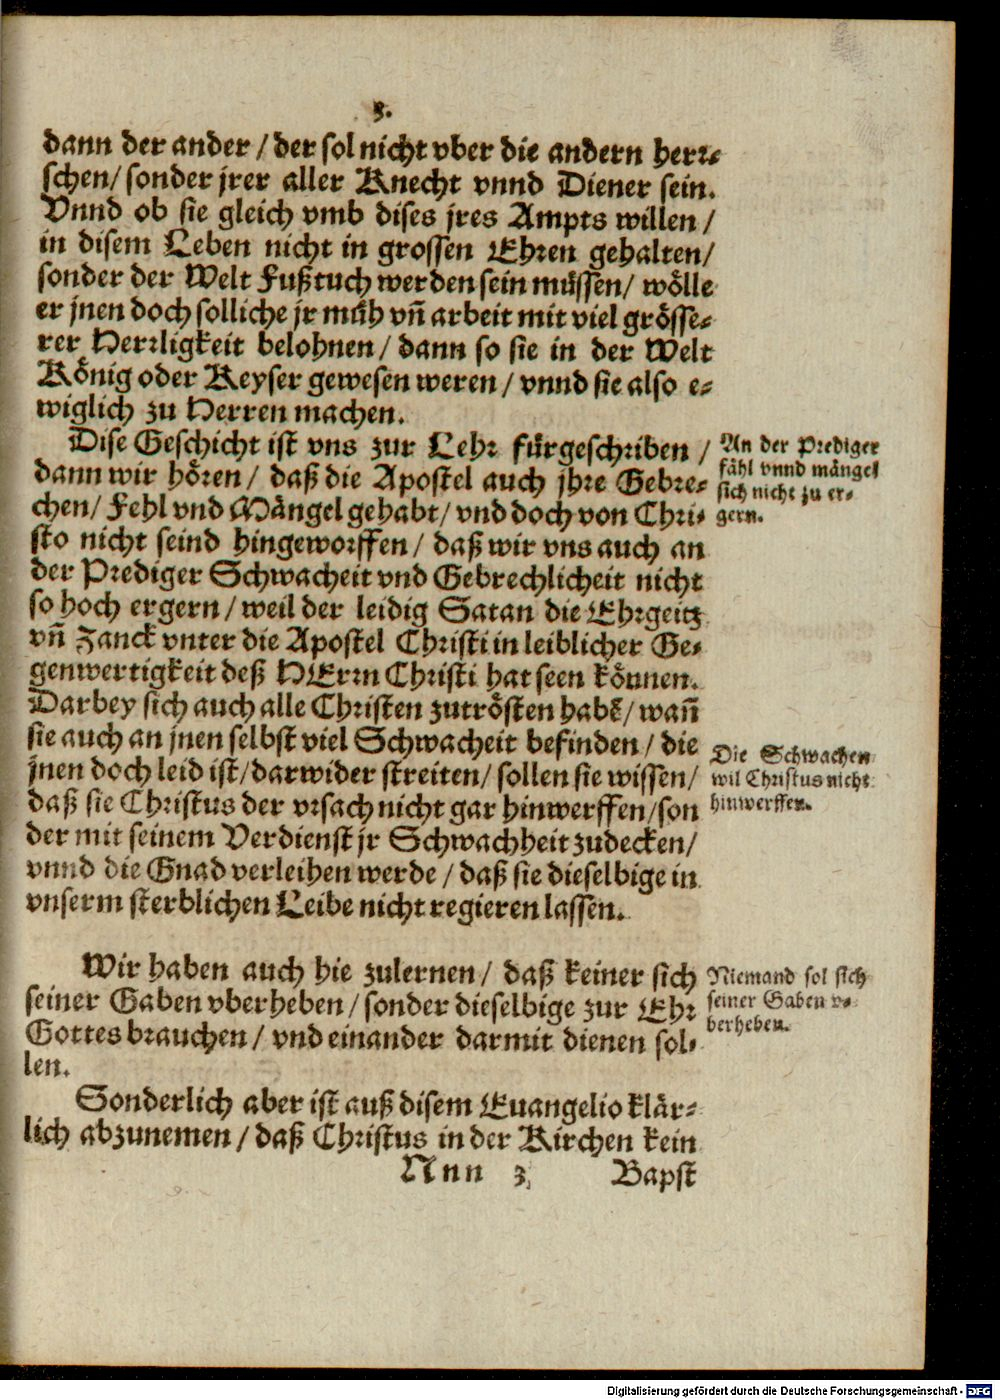 3.
dann der ander / der sol nicht vber die andern herr⸗
schen / sonder jrer aller Knecht vnnd Diener sein.
Vnnd ob sie gleich vmb dises jres Ampts willen /
in disem Leben nicht in grossen Ehren gehalten /
sonder der Welt Fußtuch werden sein müssen / wölle
er jnen doch solliche jr müh vñ arbeit mit viel grösse⸗
rer Herrligkeit belohnen / dann so sie in der Welt
König oder Keyser gewesen weren / vnnd sie also e⸗
wiglich zu Herren machen.
Dise Geschicht ist vns zur Lehr fürgeschriben /
dann wir hören / daß die Apostel auch jhre Gebre⸗
chen / Fehl vnd Mängel gehabt / vnd doch von Chri⸗
sto nicht seind hingeworffen / daß wir vns auch an
der Prediger Schwacheit vnd Gebrechlicheit nicht
so hoch ergern / weil der leidig Satan die Ehrgeitz
vñ Zanck vnter die Apostel Christi in leiblicher Ge⸗
genwertigkeit deß HErrn Christi hat seen können.
Darbey sich auch alle Christen zutrösten habē / wañ
sie auch an jnen selbst viel Schwacheit befinden / die
jnen doch leid ist / darwider streiten / sollen sie wissen /
daß sie Christus der vrsach nicht gar hinwerffen / son
der mit seinem Verdienst jr Schwachheit zudecken /
vnnd die Gnad verleihen werde / daß sie dieselbige in
vnserm sterblichen Leibe nicht regieren lassen.
An der Prediger
fähl vnnd mängel
sich nicht zu er⸗
gern.
Die Schwachen
wil Christus nicht
hinwerffen.
Wir haben auch hie zulernen / daß keiner sich
seiner Gaben vberheben / sonder dieselbige zur Ehr
Gottes brauchen / vnd einander darmit dienen sol⸗
len.
Niemand sol sich
seiner Gaben v⸗
berheben.
Sonderlich aber ist auß disem Euangelio klär⸗
lich abzunemen / daß Christus in der Kirchen kein
Nnn 3
Bapst
Digitalisierung gefördert durch die Deutsche Forschungsgemeinschaft - DFG